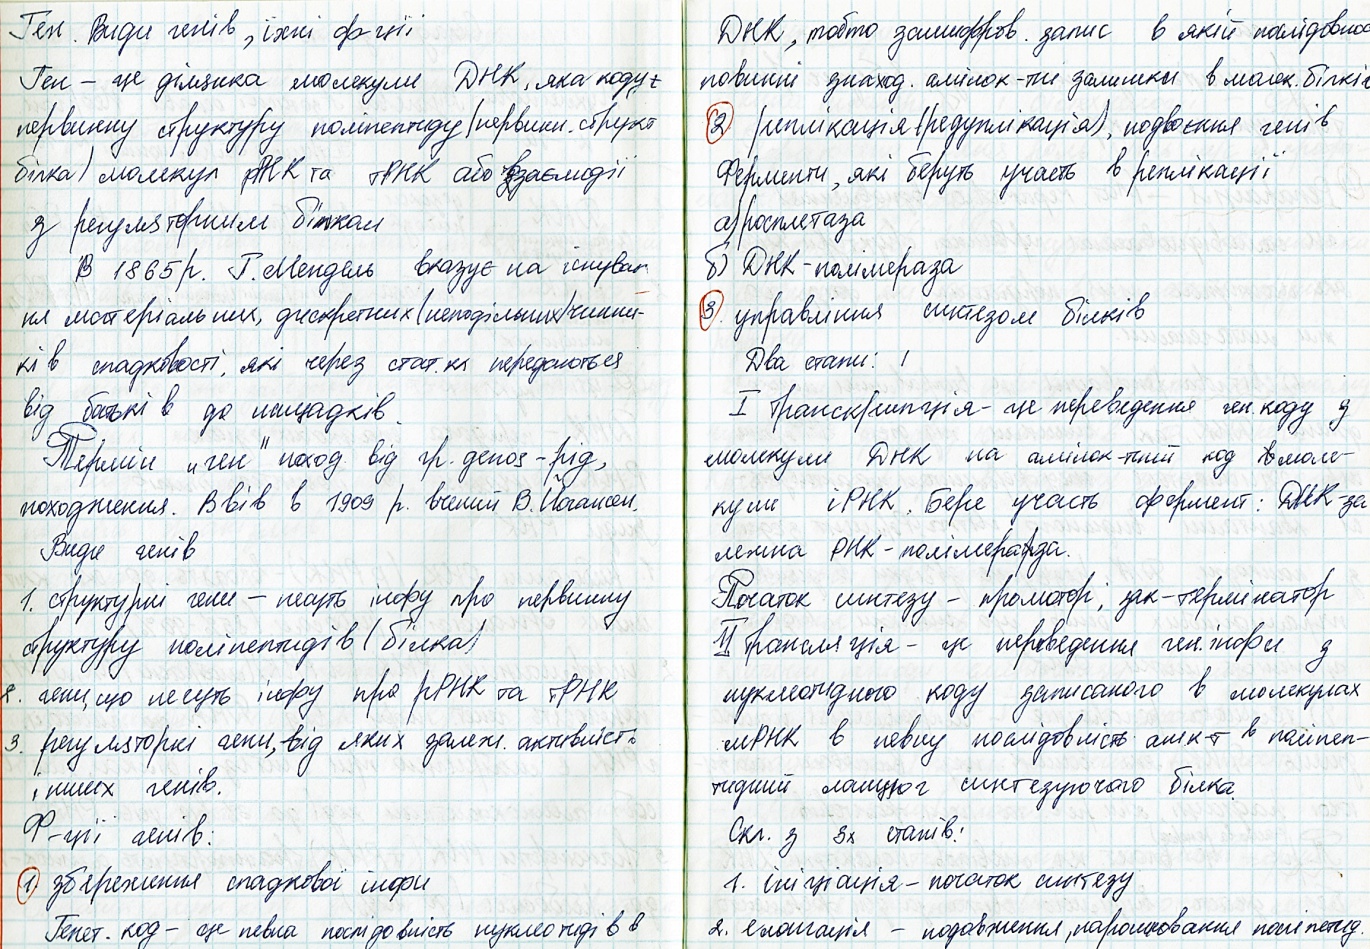 Ген. Види генів, їхні ф-ції
Ген – це ділянка молекули ДНК, яка кодує
первинну структуру поліпептиду (первин. структ
білка) молекул рРНК та тРНК або взаємодії
з регуляторним білком
В 1865 р. Г. Мендель вказує на існуван
ня матеріальних, дискретних (неподільних) чинни-
ків спадковості, які через стат. кл передаються
від батьків до нащадків.
Термін „ген" поход. від гр. genos – рід,
походження. Ввів в 1909 р. вчений В. Йогансен.
Види генів
1. структурні гени – несуть інфу про первинну
структуру поліпептидів (білка)
2. гени, що несуть інфу про рРНК та тРНК
3. регуляторні гени, від яких залеж. активність
інших генів.
Ф-ції генів:
1 збереження спадкової інфи
Генет. код – це певна послідовність нуклеотидів в
ДНК, тобто зашифров. запис в якій послідовнос
повинні знаход. амінок-тні залишки в молек. білків
2 реплікація (редуплікація), подвоєння генів
Ферменти, які беруть участь в реплікації
а) росплетаза
б) ДНК-полімераза
3. управління синтезом білків
Два етапи:
I Транскрипція – це переведення ген. коду з
молекули ДНК на амінок-тний код в моле-
кули іРНК. Бере участь фермент: ДНК-за
лежна РНК-полімераза.
Початок синтезу – промотор, зак – термінатор
II Трансляція – це переведення ген. інфи з
нуклеотидного коду записаного в молекулах
мРНК в певну послідовність амік-т в поліпеп-
тидний ланцюг синтезуючого білка
Скл. з 3х етапів:
1. ініціація – початок синтезу
2. елонгація – подовження, нарощювання поліпептид